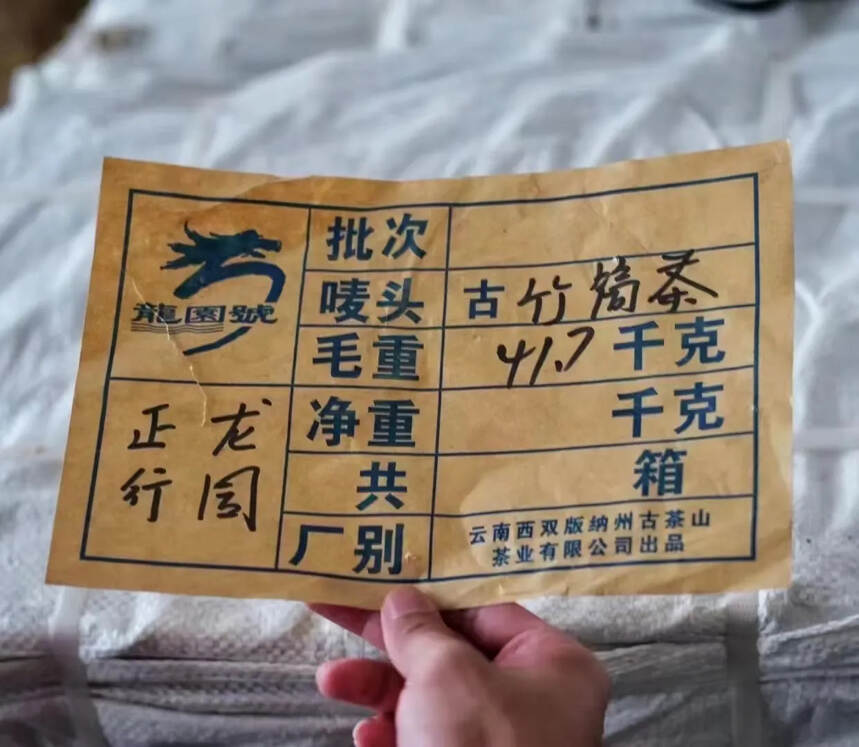 龍園號
批次
唛头 古竹筒茶
毛重 41.7千克
净重 千克
共 箱
厂别 云南西双版纳州古茶山
茶业有限公司出品
龙园
正行